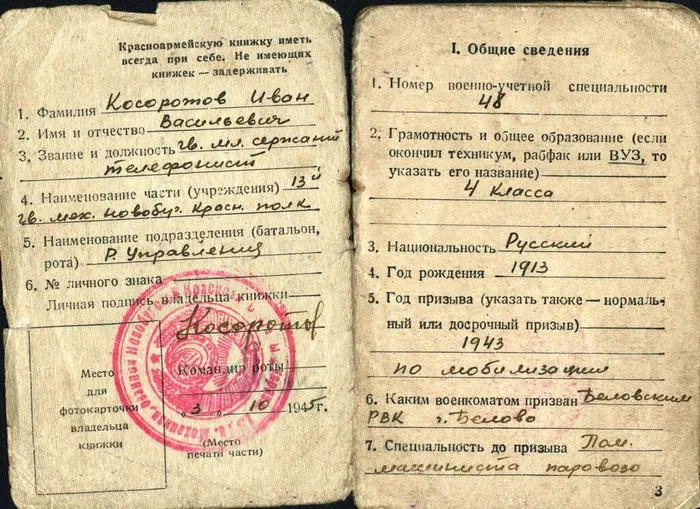 Красноармейскую книжку иметь
всегда при себе. Не имеющих
книжек — задерживать
1. Фамилия Косоротов Иван
2. Имя и отчество Васильевич
3. Звание и должность гв. мл. сержант
телефонист
4. Наименование части (учреждения) 13й
гв. мех. Новобуг. Красн. полк
5. Наименование подразделения (батальон,
рота) Р. Управления
6. № личного знака
Личная подпись владельца книжки
Косоротов
Место
для
фотокарточки
владельца
книжки
Командир роты
„3" 10 1945 г.
(Место
печати части)
I. Общие сведения
1. Номер военно-учетной специальности
48
2. Грамотность и общее образование (если
окончил техникум, рабфак или ВУЗ, то
указать его название)
4 класса
3. Национальность Русский
4. Год рождения 1913
5. Год призыва (указать также — нормаль-
ный или досрочный призыв)
1943
по мобилизации
6. Каким военкоматом призван Беловским
РВК г. Белово
7. Специальность до призыва Пом.
машиниста паровозо
3